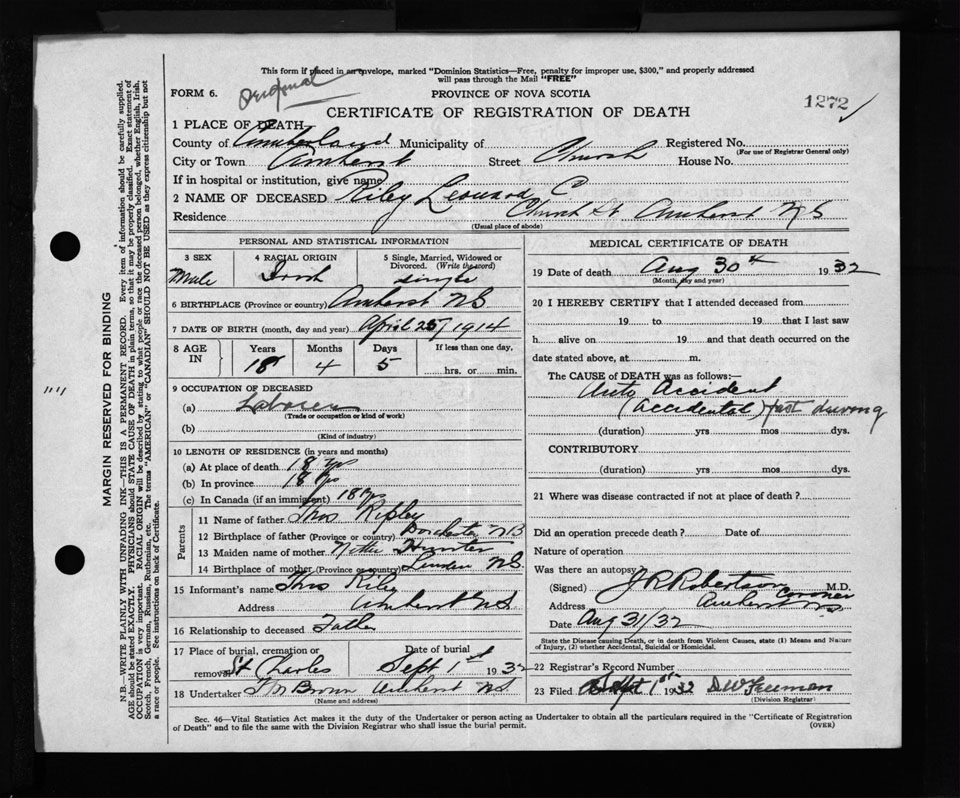 This form if placed in an envelope, marked "Dominion Statistics—Free, penalty for improper use, $300," and properly addressed
will pass through the Mail "FREE"
FORM 6. Original PROVINCE OF NOVA SCOTIA 1272
CERTIFICATE OF REGISTRATION OF DEATH
1 PLACE OF DEATH
County of Cumberland Municipality of Registered No.
(For use of Registrar General only)
City or Town Amherst Street Church House No.
If in hospital or institution, give name
2 NAME OF DECEASED Riley Leonard C
Residence Church St Amherst NS
(Usual place of abode)
PERSONAL AND STATISTICAL INFORMATION
3 SEX Male
4 RACIAL ORIGIN Irish
5 Single, Married, Widowed or Divorced. (Write the word) Single
6 BIRTHPLACE (Province or country) Amherst NS
7 DATE OF BIRTH (month, day and year) April 25/1914
8 AGE IN Years Months Days If less than one day,
18 4 5 hrs. or min.
9 OCCUPATION OF DECEASED
(a) Laborer
(Trade or occupation or kind of work)
(b)
(Kind of industry)
10 LENGTH OF RESIDENCE (in years and months)
(a) At place of death 18 yrs
(b) In province 18 yrs
(c) In Canada (if an immigrant) 18 yrs
Parents
11 Name of father Thos Ripley
12 Birthplace of father (Province or country) Dorchester NB
13 Maiden name of mother Nettie Hunter
14 Birthplace of mother (Province or country) NS
15 Informant's name Thos Riley
Address Amherst NS
16 Relationship to deceased Father
17 Place of burial, cremation or removal St Charles Date of burial Sept 1st 1932
18 Undertaker Brown Amherst NS
(Name and address)
MEDICAL CERTIFICATE OF DEATH
19 Date of death Aug 30th 1932
(Month, day and year)
20 I HEREBY CERTIFY that I attended deceased from
19 to 19 that I last saw
h alive on 19 and that death occurred on the
date stated above, at m.
The CAUSE of DEATH was as follows:—
Auto Accident
(Accidental) fast driving
(duration) yrs mos dys.
CONTRIBUTORY
(duration) yrs mos dys.
21 Where was disease contracted if not at place of death?
Did an operation precede death? Date of
Nature of operation
Was there an autopsy
(Signed) J R Robertson Coroner M.D.
Address Amherst NS
Date Aug 31/32
State the Disease causing Death, or in death from Violent Causes, state (1) Means and Nature
of Injury, (2) whether Accidental, Suicidal or Homicidal.
22 Registrar's Record Number
23 Filed Sept 1st 1932 D W Freeman
(Division Registrar)
Sec. 46—Vital Statistics Act makes it the duty of the Undertaker or person acting as Undertaker to obtain all the particulars required in the "Certificate of Registration
of Death" and to file the same with the Division Registrar who shall issue the burial permit. (OVER)
MARGIN RESERVED FOR BINDING
N.B.—WRITE PLAINLY WITH UNFADING INK—THIS IS A PERMANENT RECORD. Every item of information should be carefully supplied.
AGE should be stated EXACTLY. PHYSICIANS should STATE CAUSE OF DEATH in plain terms, so that it may be properly classified. Exact statement of
OCCUPATION is very important. RACIAL ORIGIN will be described by stating to what people or race the deceased person belonged, whether English, Irish,
Scotch, French, German, Russian, Ruthenian, etc. The terms "AMERICAN" or "CANADIAN" SHOULD NOT BE USED as they express citizenship but not
a race or people. See instructions on back of Certificate.